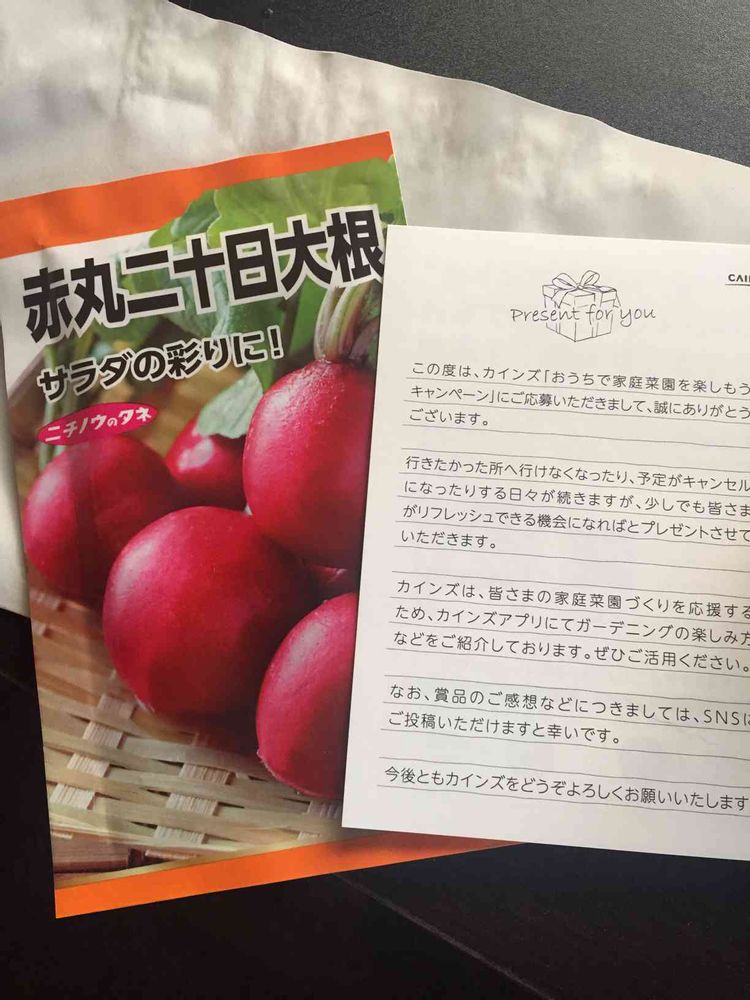 赤丸二十日大根
サラダの彩りに!
ニチノウのタネ
CAI
Present for you
この度は、カインズ「おうちで家庭菜園を楽しもう
キャンペーン」にご応募いただきまして、誠にありがとう
ございます。
行きたかった所へ行けなくなったり、予定がキャンセル
になったりする日々が続きますが、少しでも皆さま
がリフレッシュできる機会になればとプレゼントさせて
いただきます。
カインズは、皆さまの家庭菜園づくりを応援する
ため、カインズアプリにてガーデニングの楽しみ方
などをご紹介しております。ぜひご活用ください。
なお、賞品のご感想などにつきましては、SNSに
ご投稿いただけますと幸いです。
今後ともカインズをどうぞよろしくお願いいたします